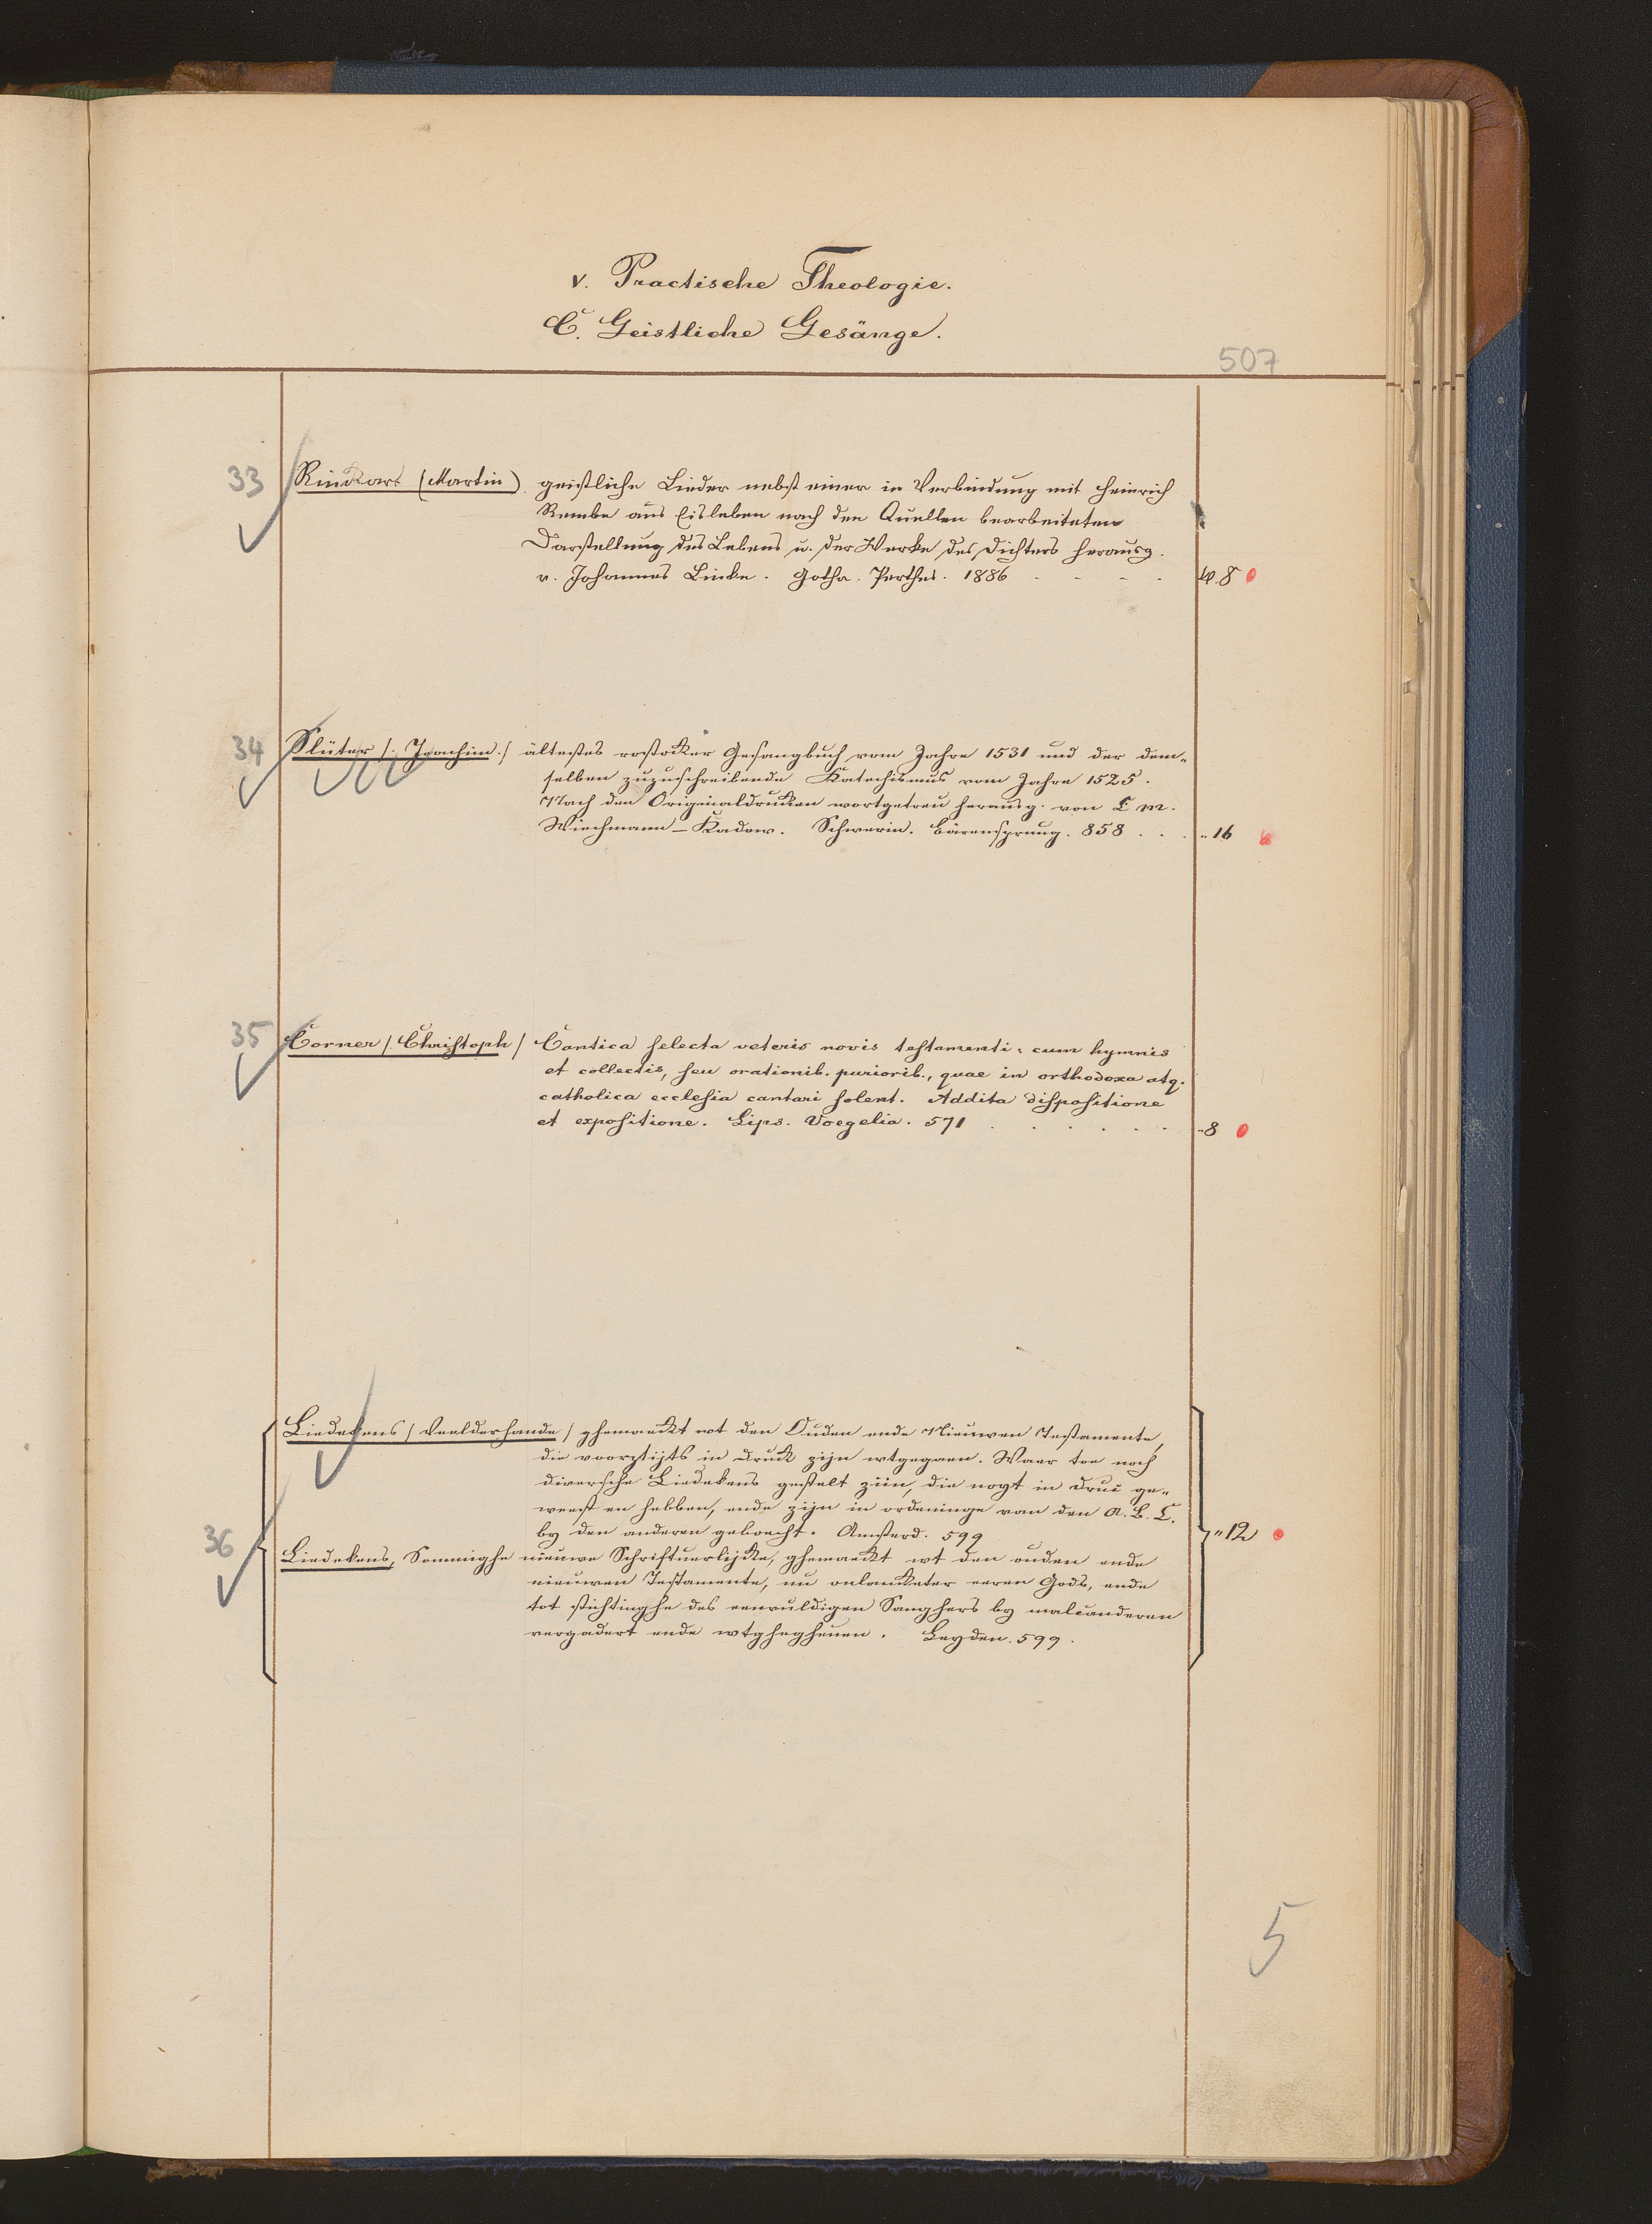 v. Practische Theologie.
C. Geistliche Gesänge.
507
33 Rinkart (Martin) geistliche Lieder nebst einer in Verbindung mit Heinrich
Rembe aus Eisleben nach den Quellen bearbeiteten
Darstellung des Lebens u. der Werke des Dichters herausg.
v. Johannes Linke. Gotha. Perthes. 1886 . . . . 8
34 Slüter /: Joachim :/ ältestes rostocker Gesangbuch vom Jahre 1531 und der dem-
selben zuzuschreibende Katechismus vom Jahre 1525.
Nach den Originaldrucken wortgetreu herausg. von C M.
Wiechmann-Kadow. Schwerin. Bärensprung. 858 . . . " 16
35 Corner /: Christoph / Cantica selecta veteris novis testamenti: cum hymnis
et collectis, seu orationib. puriorib., quae in orthodoxa atq.
catholica ecclesia cantari solent. Addita dispositione
et expositione. Lips. Voegelia. 571 . . . . . . " 8
Liedekens / Veelderhande / ghemaeckt wt den Ouden ende Nieuwen Testamente,
die voortijts in Druck zijn wtgegaen. Waer toe noch
diversche Liedekens gestelt zijn, die noyt in Druc ge-
weest en hebben, ende zijn in ordeninge van den A. B. C.
by den anderen gebrocht. Amsterd. 599
36 " 12
Liedekens, Sommighe nieuwe Schriftuerlijcke, ghemaeckt wt den ouden ende
nieuwen Testamente, nu eeren Gods, ende
tot stichtinghe des eenvuldigen Sanghers by malcanderen
vergadert ende wtghegheuen. Leyden. 599.
5